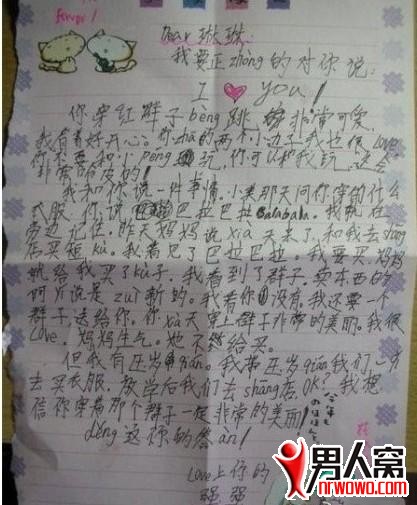 fevor!
Dear 琳琳:
我要正zhòng的对你说:
I you!
你穿红群子bèng跳 非常可爱,
我看着好开心。你zhā的两个小边子我也很Love.
你不要和小péng 玩,你可以和我玩,这会
非常哈皮的!
我和你说一件事情。小美那天问你穿的什么
衣服,你说 巴拉巴拉Balabala。我就在
旁边记住,昨天妈妈说xià天来了,和我去shāng
店买短kù。我看见了巴拉巴拉。我要买妈妈
就给我买了kù子。我看到了群子,卖东西的
阿yí说是zuì新的。我看你 没有。我还要一个
群子,送给你。你xià天穿上群子非常的美丽。我很
Love。妈妈生气。她不 给买。
但我有压岁qián。我带压岁qián我们一齐
去买衣服。放学后我们去shāng店。OK?我想
信你穿着那个群子一定非常的美丽!
děng这你的答àn!
Love上你的
强强
男人窝
nrwowo.com